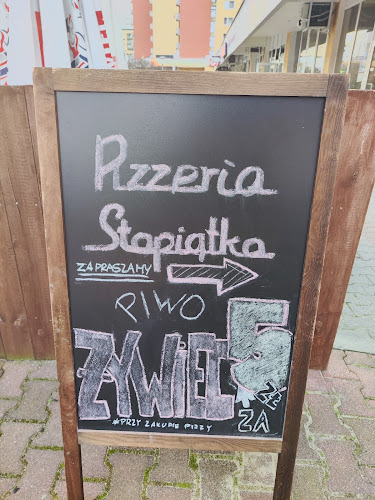 Pizzeria
Stopiątka
ZAPRASZAMY
PIWO
ŻYWIEC 5 ZŁ
*PRZY ZAKUPIE PIZZY ZA